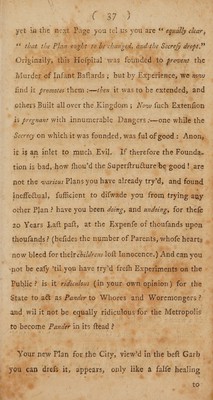 ( 37 )
yet in the next Page you tel us you are " equally clear,
" that the Plan ought to be changed, and the Secresy dropt."
Originally, this Hospital was founded to prevent the
Murder of Infant Bastards ; but by Experience, we now
find it promotes them :—then it was to be extended, and
others Built all over the Kingdom ; Now such Extension
is pregnant with innumerable Dangers :—one while the
Secresy on which it was founded, was ful of good : Anon,
it is an inlet to much Evil. If therefore the Founda-
tion is bad, how shou'd the Superstructure be good ! are
not the various Plans you have already try'd, and found
ineffectual, sufficient to diswade you from trying any
other Plan ? have you been doing, and undoing, for these
20 Years Last past, at the Expense of thousands upon
thousands ? (besides the number of Parents, whose hearts
now bleed for their childrens lost Innocence.) And can you
not be easy 'til you have try'd fresh Experiments on the
Public ? is it ridiculous (in your own opinion) for the
State to act as Pander to Whores and Woremongers ?
and wil it not be equally ridiculous for the Metropolis
to become Pander in its stead ?
Your new Plan for the City, view'd in the best Garb
you can dress it, appears, only like a false healing
to